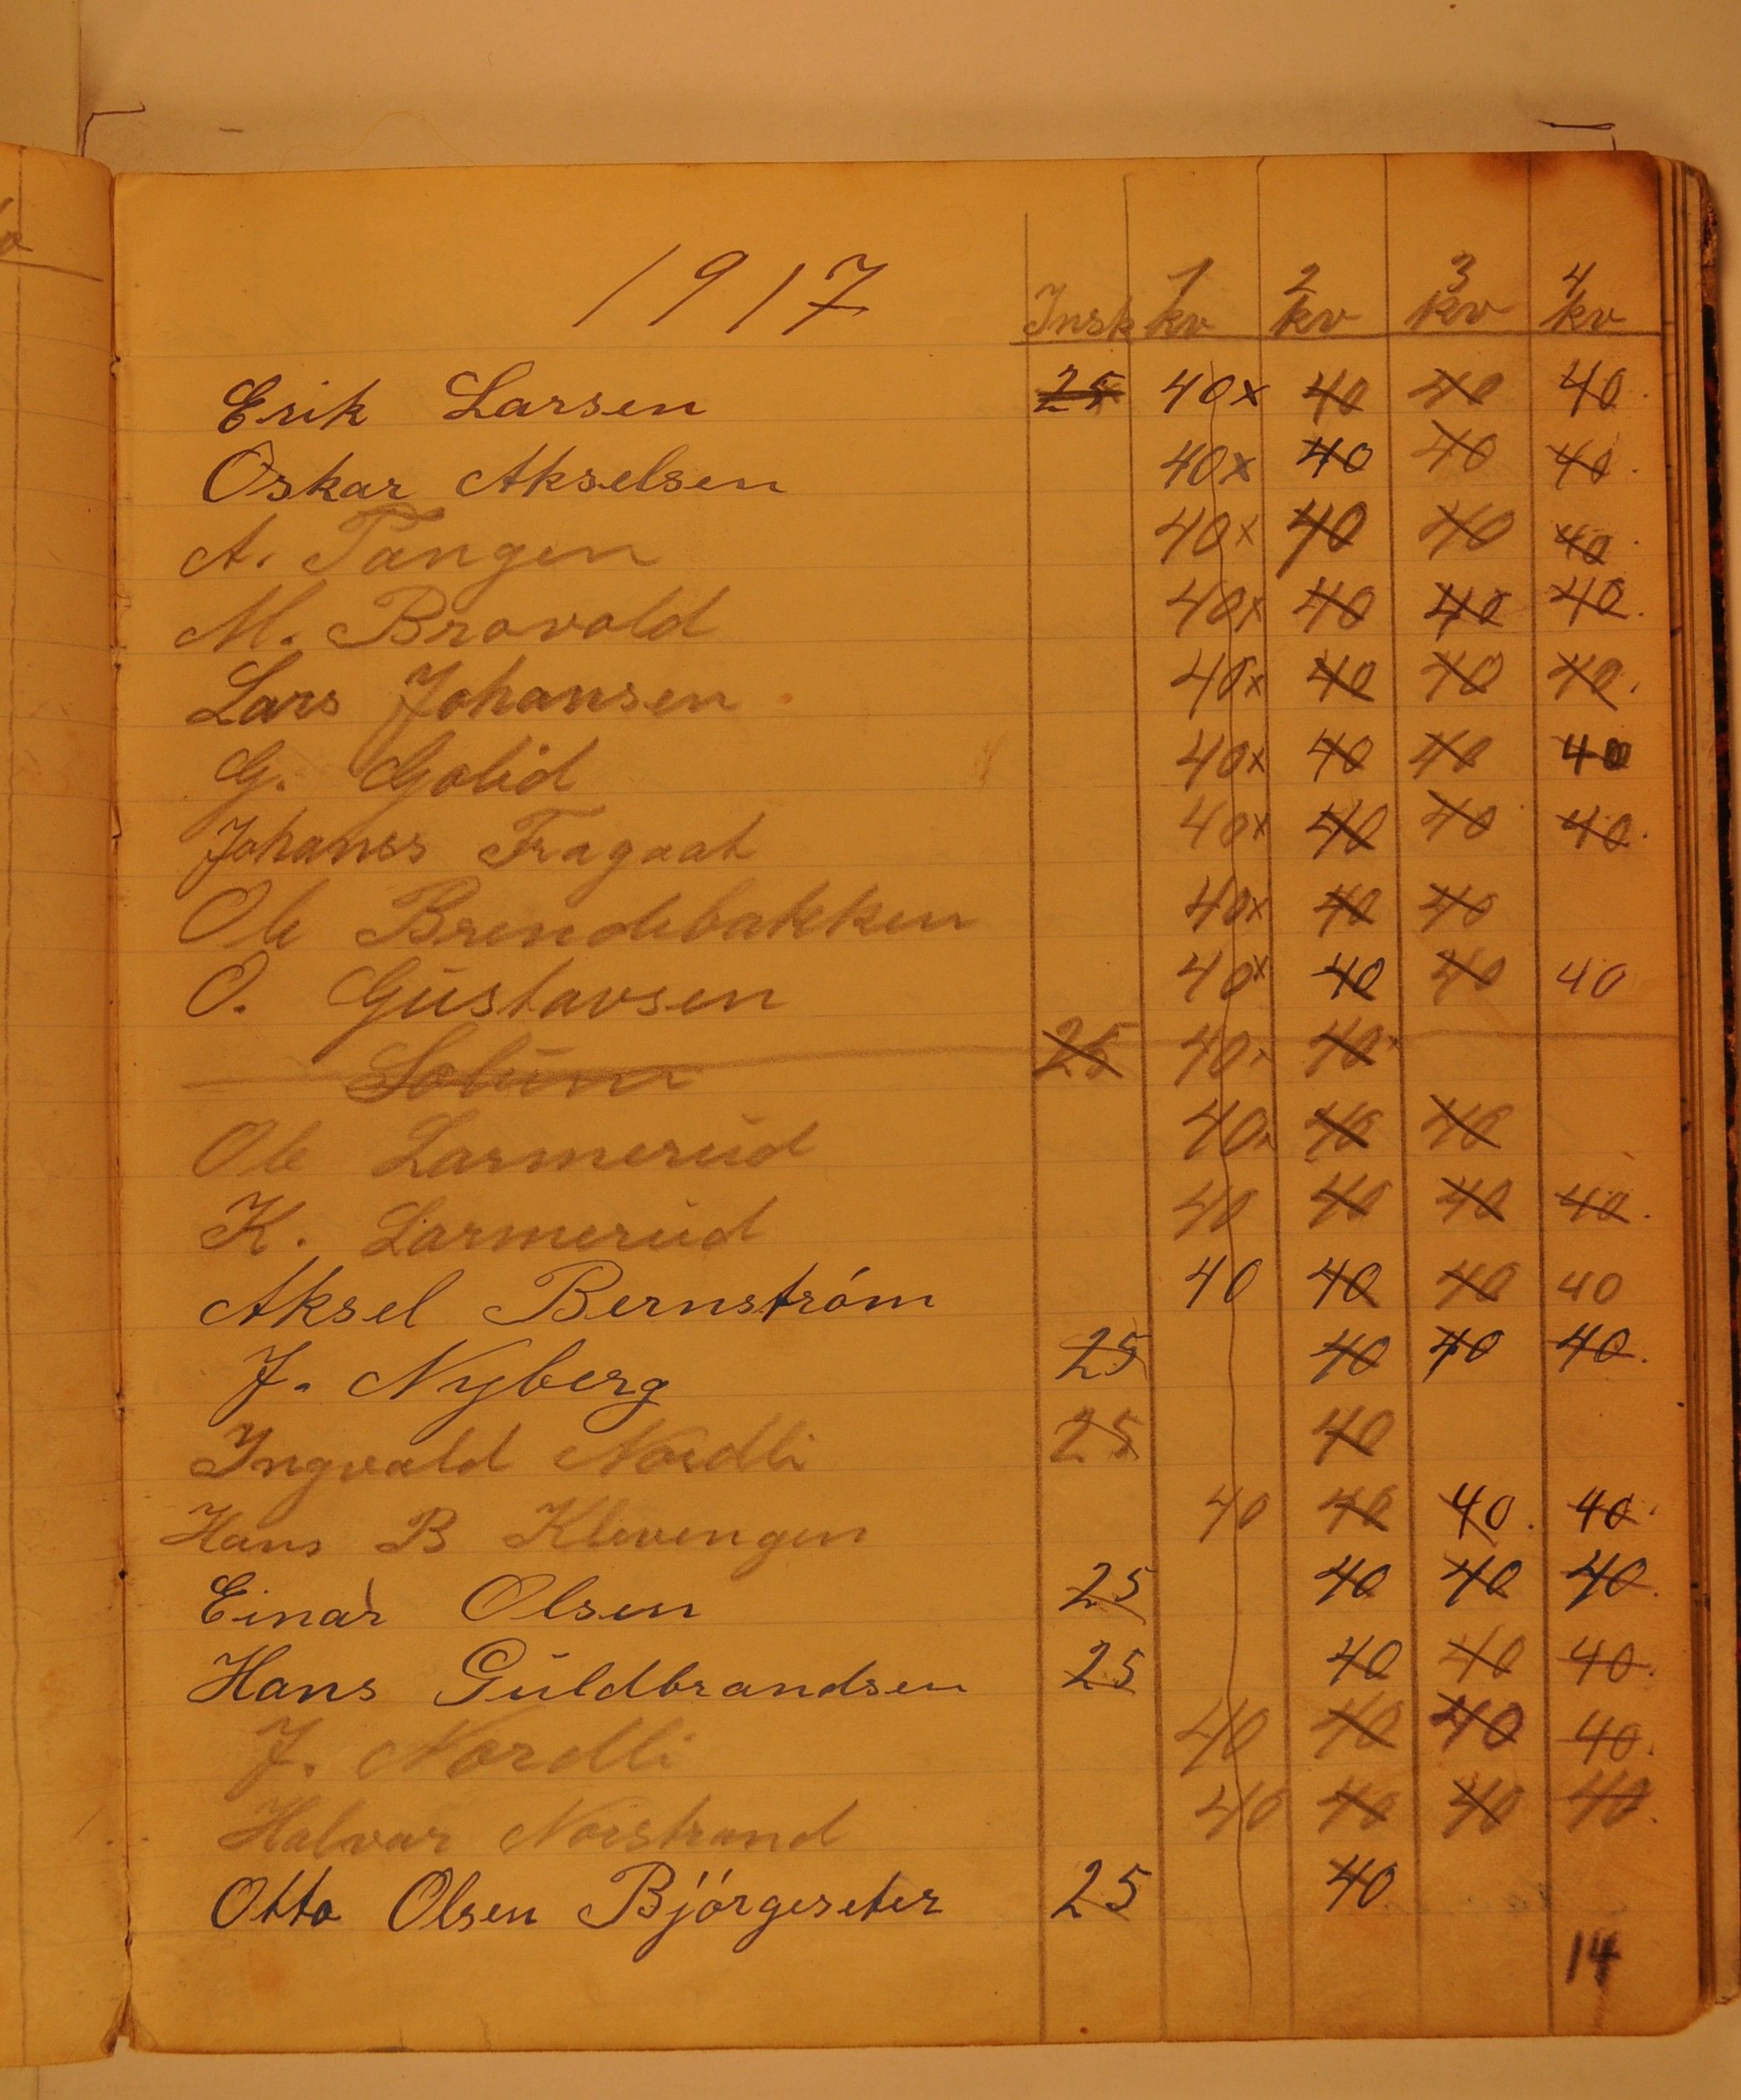 1917
Insk 1 kv 2 kv 3 kv 4 kv
Erik Larsen 25 40x 40 40 40
Oskar Akselsen 40x 40 40 40
A. Tangen 40x 40 40 40
M. Bravold 40x 40 40 40
Lars Johansen 40x 40 40 40
G. Golid 40x 40 40 40
Johanes Fragaat 40x 40 40 40
Ole Brendebakken 40x 40 40
O. Gustavsen 40x 40 40 40
Solum 25 40x 40x
Ole Larmerud 40x 40 40
K. Larmerud 40 40 40 40
Aksel Bernström 40 40 40 40
J. Nyberg 25 40 40 40
Ingvald Nordli 25 40
Hans B Klevengen 40 40 40 40
Einar Olsen 25 40 40 40
Hans Guldbrandsen 25 40 40 40
J. Nordli 40 40 40 40
Halvar Norstrand 40 40 40 40
Otto Olsen Bjórgeseter 25 40
14